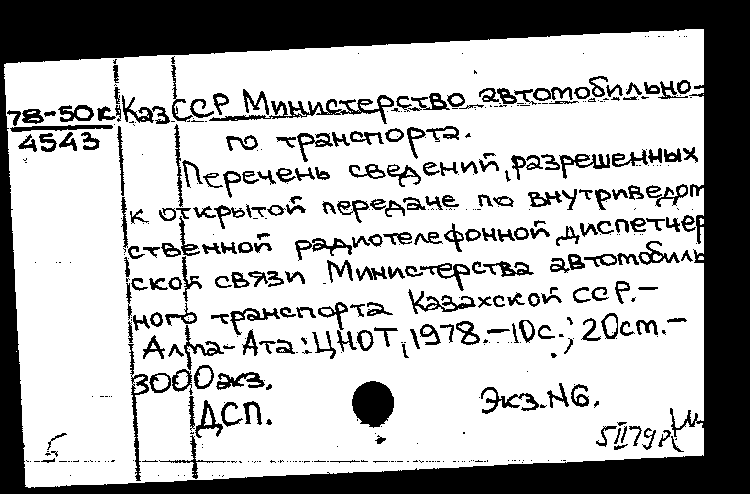 78-50к
4543
КазССР Министерство автомобильно-
го транспорта.
Перечень сведений, разрешенных
к открытой передаче по внутриведом
ственной радиотелефонной диспетчер
ской связи Министерства автомобиль
ного транспорта Казахской ССР.-
Алма-Ата: ЦНОТ, 1978.-10с.; 20см.-
3000экз.
ДСП. Экз.N6.
5 II 79р
Б